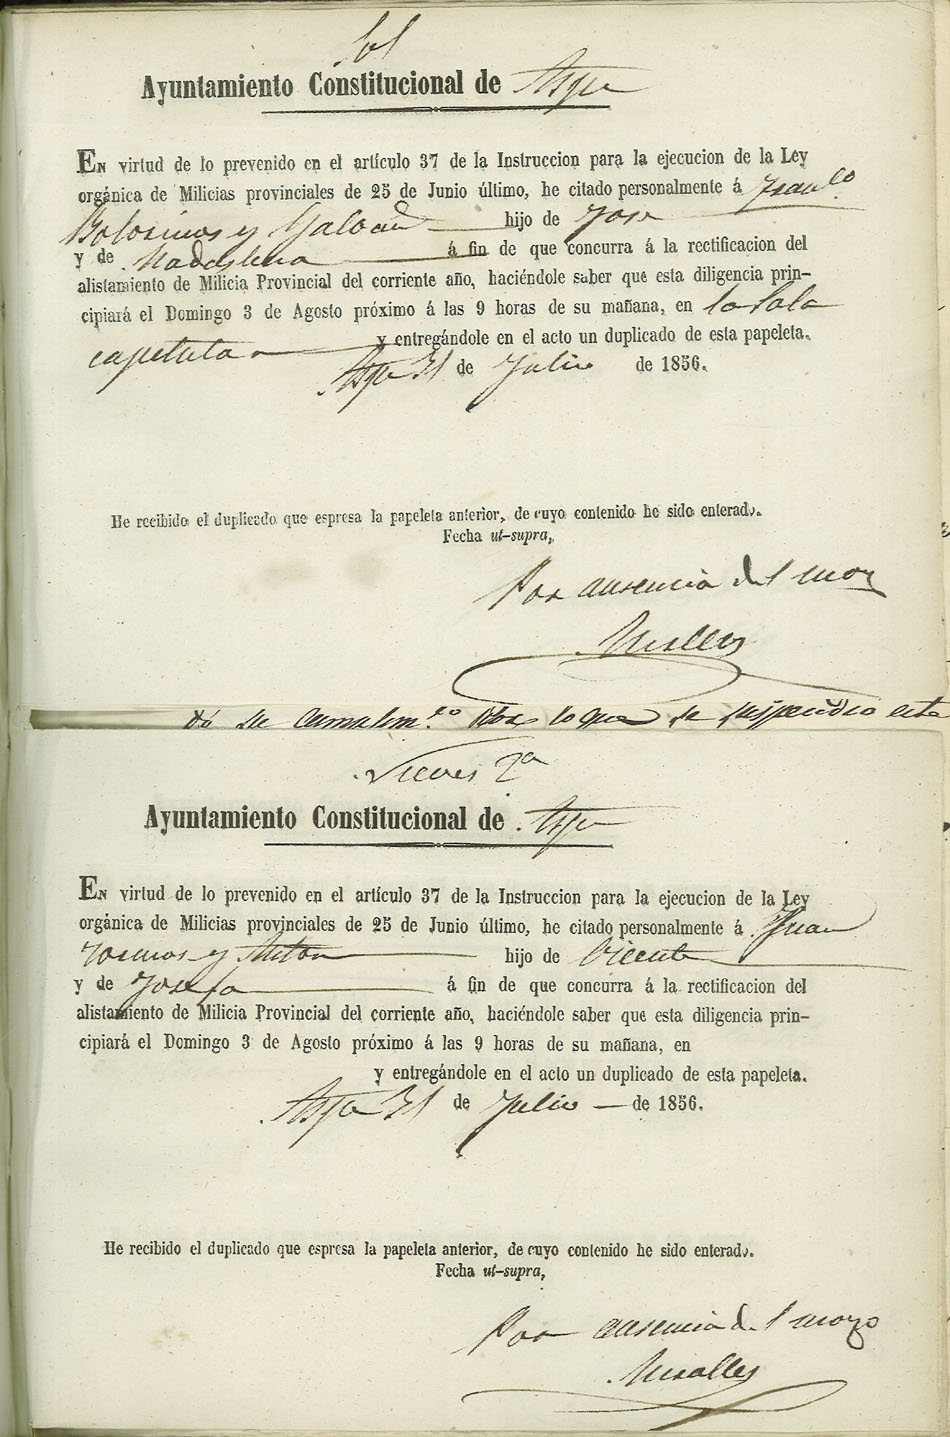 Sol
Ayuntamiento Constitucional de Aspe
EN virtud de lo prevenido en el artículo 37 de la Instruccion para la ejecucion de la Ley
orgánica de Milicias provinciales de 25 de Junio último, he citado personalmente á Franco
Botosinos y Galvañ hijo de Jose
y de Madalena á fin de que concurra á la rectificacion del
alistamiento de Milicia Provincial del corriente año, haciéndole saber que esta diligencia prin-
cipiará el Domingo 3 de Agosto próximo á las 9 horas de su mañana, en la Sala
capitular y entregándole en el acto un duplicado de esta papeleta.
Aspe 31 de Julio de 1856.
He recibido el duplicado que espresa la papeleta anterior, de cuyo contenido he sido enterado.
Fecha ut-supra,
Por ausencia del mozo
Miralles
su cumplimto lo que se suspendio este
Nieves 2a
Ayuntamiento Constitucional de Aspe
EN virtud de lo prevenido en el artículo 37 de la Instruccion para la ejecucion de la Ley
orgánica de Milicias provinciales de 25 de Junio último, he citado personalmente á Juan
y Anton hijo de Vicente
y de Josefa á fin de que concurra á la rectificacion del
alistamiento de Milicia Provincial del corriente año, haciéndole saber que esta diligencia prin-
cipiará el Domingo 3 de Agosto próximo á las 9 horas de su mañana, en
y entregándole en el acto un duplicado de esta papeleta.
Aspe 31 de Julio de 1856.
He recibido el duplicado que espresa la papeleta anterior, de cuyo contenido he sido enterado.
Fecha ut-supra,
Por ausencia del mozo
Miralles